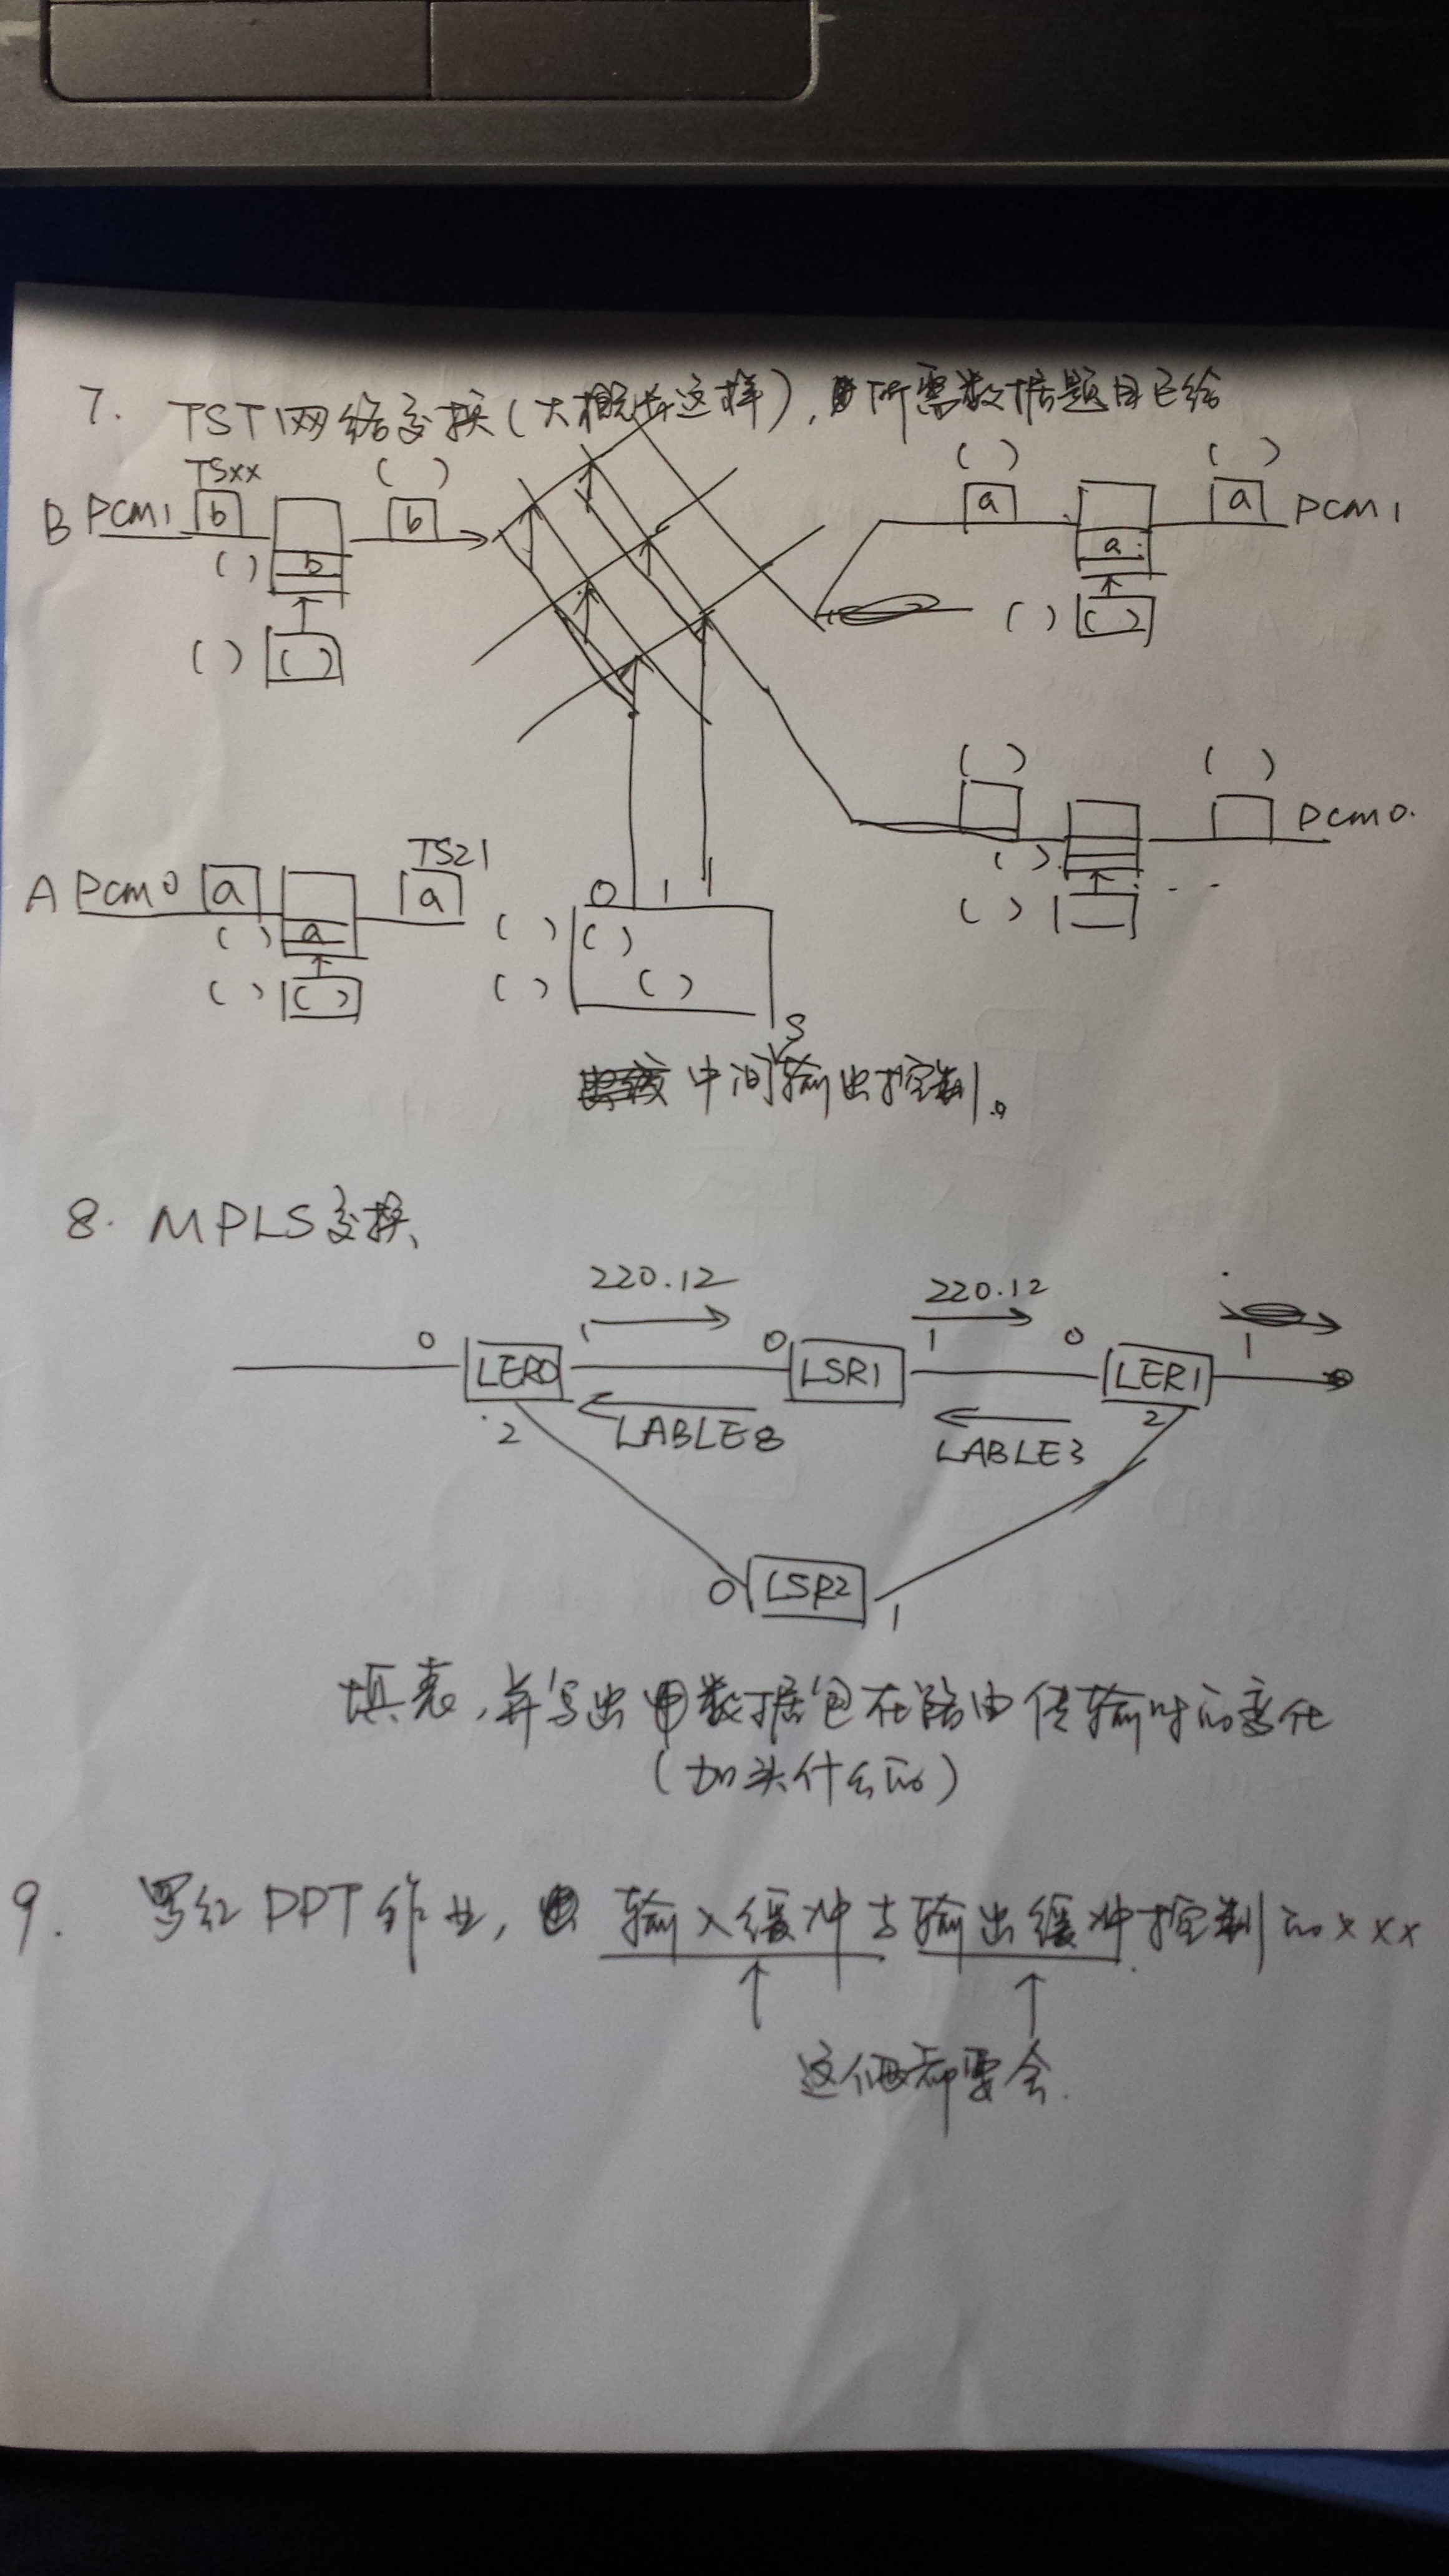 7. TST网络交换(大概长这样),所需数据题目已给
TSxx ( ) ( ) ( )
B PCM1 b b a a PCM1
( ) b a
( ) ( ) ( ) ( )
( ) ( )
TS21 PCM0
A PCM0 a a ( )
( ) a ( ) ...
0 1
( ) ( )
( ) ( ) ( ) ( )
S
中间输出控制。
8. MPLS交换
220.12 220.12
0 1 0 1 0 1
LER0 LSR1 LER1
2 LABLE8 LABLE3 2
0 LSR2 1
填表,并写出数据包在路由传输时的变化
(加头什么的)
9. PPT作业, 输入缓冲与输出缓冲控制的xxx
这俩都要会.